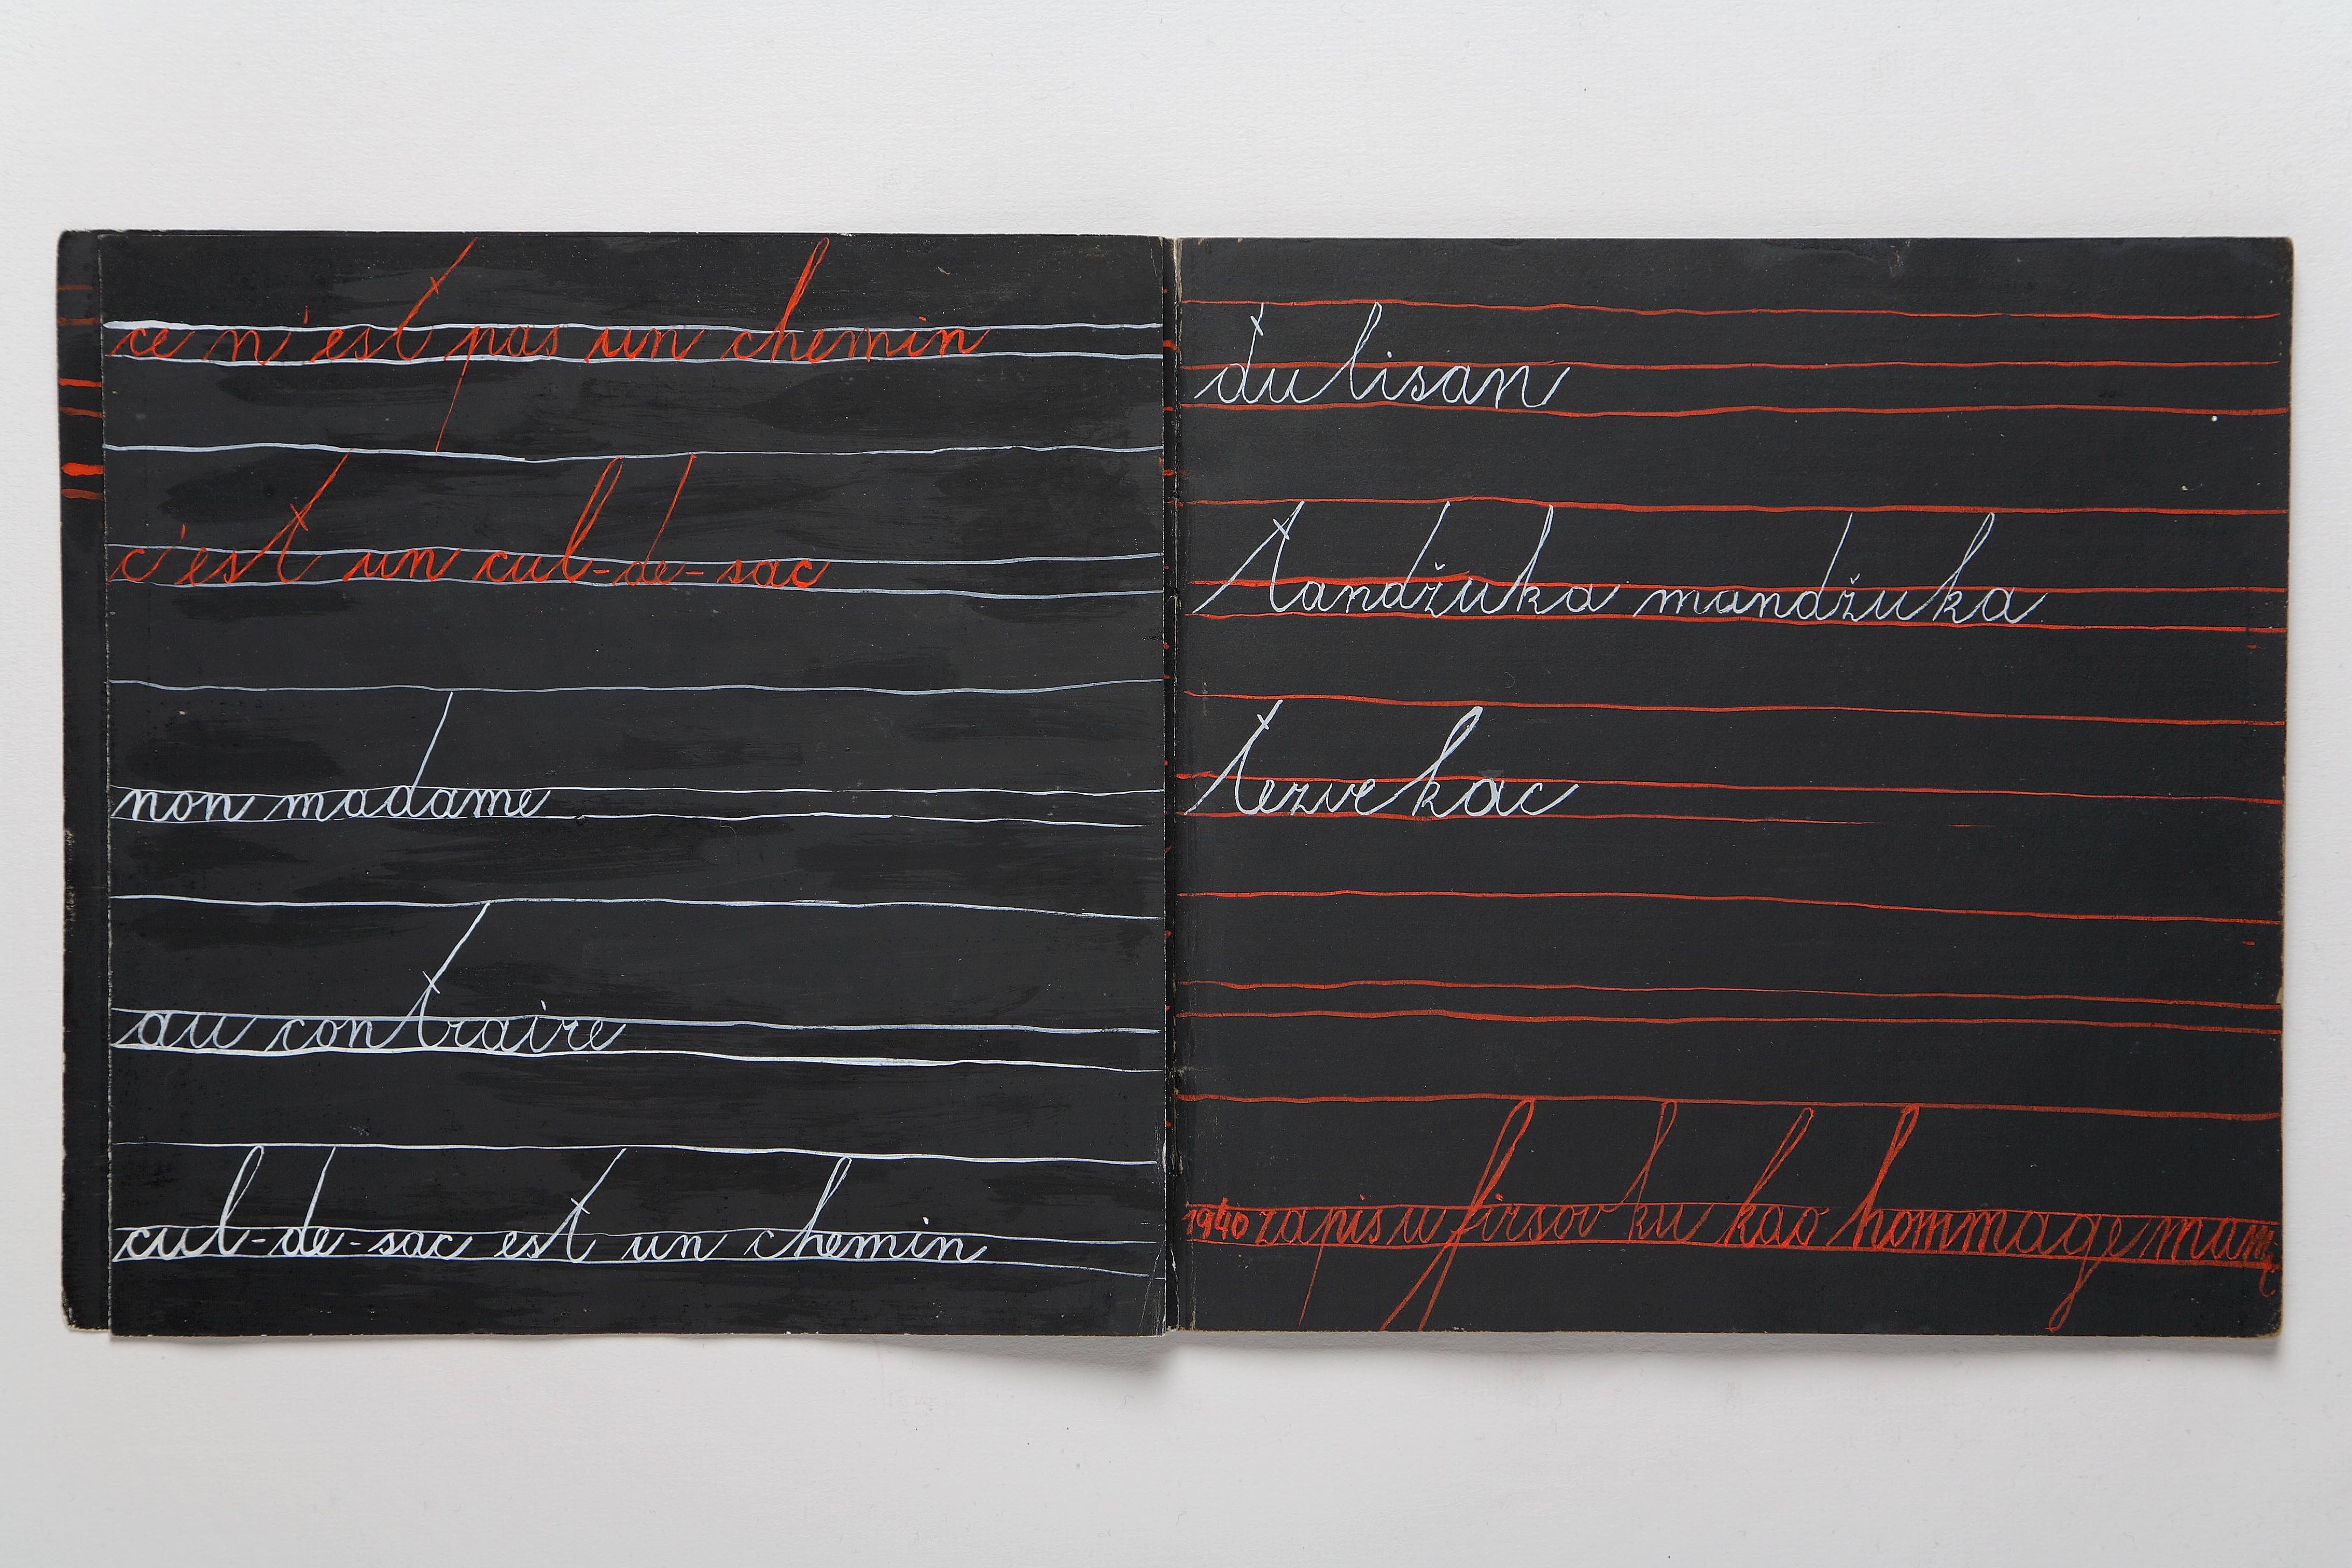 ce n'est pas un chemin
c'est un cul-de-sac
non madame
au contraire
cul-de-sac est un chemin
đulisan
tandžuka mandžuka
tezvekac
1940 zapis u firsov ku kao hommage mami